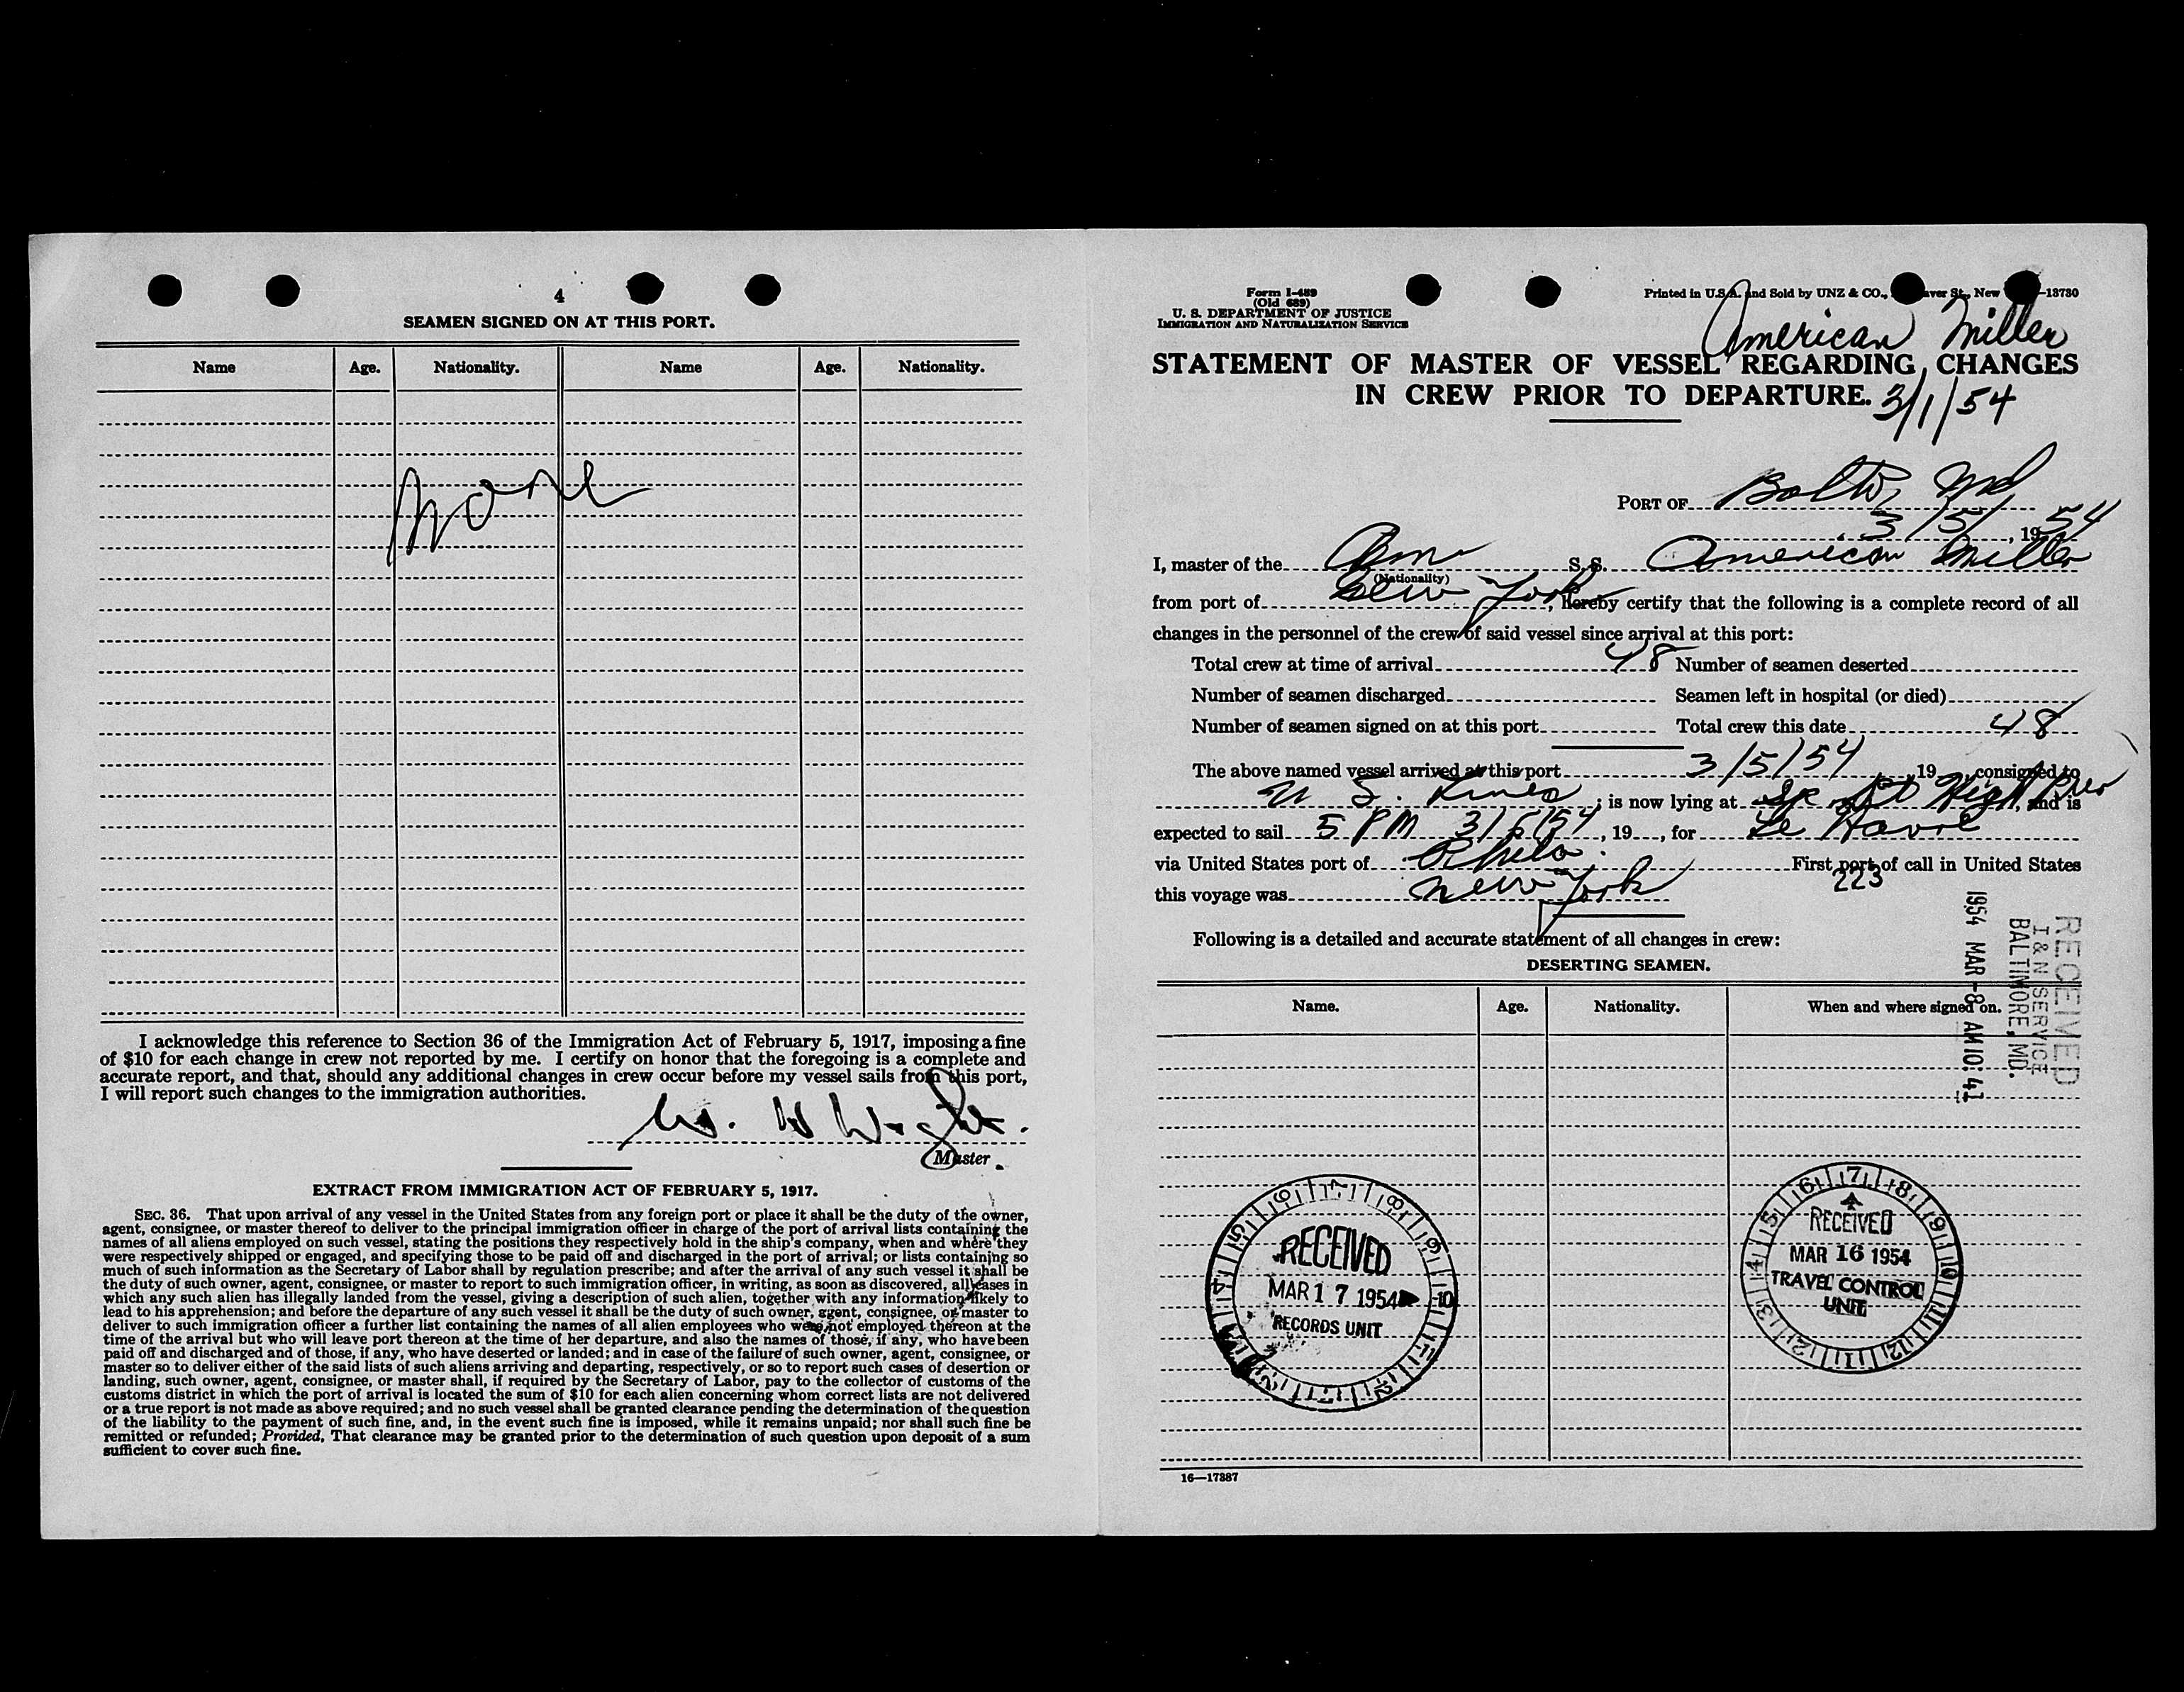 4
SEAMEN SIGNED ON AT THIS PORT.
Name Age. Nationality. Name Age. Nationality.
None
I acknowledge this reference to Section 36 of the Immigration Act of February 5, 1917, imposing a fine
of $10 for each change in crew not reported by me. I certify on honor that the foregoing is a complete and
accurate report, and that, should any additional changes in crew occur before my vessel sails from this port,
I will report such changes to the immigration authorities.
W. H
Master
EXTRACT FROM IMMIGRATION ACT OF FEBRUARY 5, 1917.
SEC. 36. That upon arrival of any vessel in the United States from any foreign port or place it shall be the duty of the owner,
agent, consignee, or master thereof to deliver to the principal immigration officer in charge of the port of arrival lists containing the
names of all aliens employed on such vessel, stating the positions they respectively hold in the ship's company, when and where they
were respectively shipped or engaged, and specifying those to be paid off and discharged in the port of arrival; or lists containing so
much of such information as the Secretary of Labor shall by regulation prescribe; and after the arrival of any such vessel it shall be
the duty of such owner, agent, consignee, or master to report to such immigration officer, in writing, as soon as discovered, all cases in
which any such alien has illegally landed from the vessel, giving a description of such alien, together with any information likely to
lead to his apprehension; and before the departure of any such vessel it shall be the duty of such owner, agent, consignee, or master to
deliver to such immigration officer a further list containing the names of all alien employees who were not employed thereon at the
time of the arrival but who will leave port thereon at the time of her departure, and also the names of those, if any, who have been
paid off and discharged and of those, if any, who have deserted or landed; and in case of the failure of such owner, agent, consignee, or
master so to deliver either of the said lists of such aliens arriving and departing, respectively, or so to report such cases of desertion or
landing, such owner, agent, consignee, or master shall, if required by the Secretary of Labor, pay to the collector of customs of the
customs district in which the port of arrival is located the sum of $10 for each alien concerning whom correct lists are not delivered
or a true report is not made as above required; and no such vessel shall be granted clearance pending the determination of the question
of the liability to the payment of such fine, and, in the event such fine is imposed, while it remains unpaid; nor shall such fine be
remitted or refunded; Provided, That clearance may be granted prior to the determination of such question upon deposit of a sum
sufficient to cover such fine.
Form I-489
(Old 689)
U. S. DEPARTMENT OF JUSTICE
IMMIGRATION AND NATURALIZATION SERVICE
Printed in U.S.A. and Sold by UNZ & CO., St., New —13730
American Miller
STATEMENT OF MASTER OF VESSEL REGARDING CHANGES
IN CREW PRIOR TO DEPARTURE. 3/1/54
PORT OF Balto, Md
3/5/, 1954
I, master of the Am S. S. American Miller
(Nationality)
from port of New York, hereby certify that the following is a complete record of all
changes in the personnel of the crew of said vessel since arrival at this port:
Total crew at time of arrival 48 Number of seamen deserted
Number of seamen discharged Seamen left in hospital (or died)
Number of seamen signed on at this port Total crew this date 48
The above named vessel arrived at this port 3/5/54, 19 , consigned to
U S. Lines; is now lying at Pt High Pier, and is
expected to sail 5 PM 3/5/54, 19 , for Le Havre
via United States port of Phila. First port of call in United States
223
this voyage was New York
Following is a detailed and accurate statement of all changes in crew:
DESERTING SEAMEN.
Name. Age. Nationality. When and where signed on.
RECEIVED
I & N SERVICE
BALTIMORE, MD.
1954 MAR -8 AM 10: 41
RECEIVED
MAR 17 1954
RECORDS UNIT
RECEIVED
MAR 16 1954
TRAVEL CONTROL
UNIT
16—17387